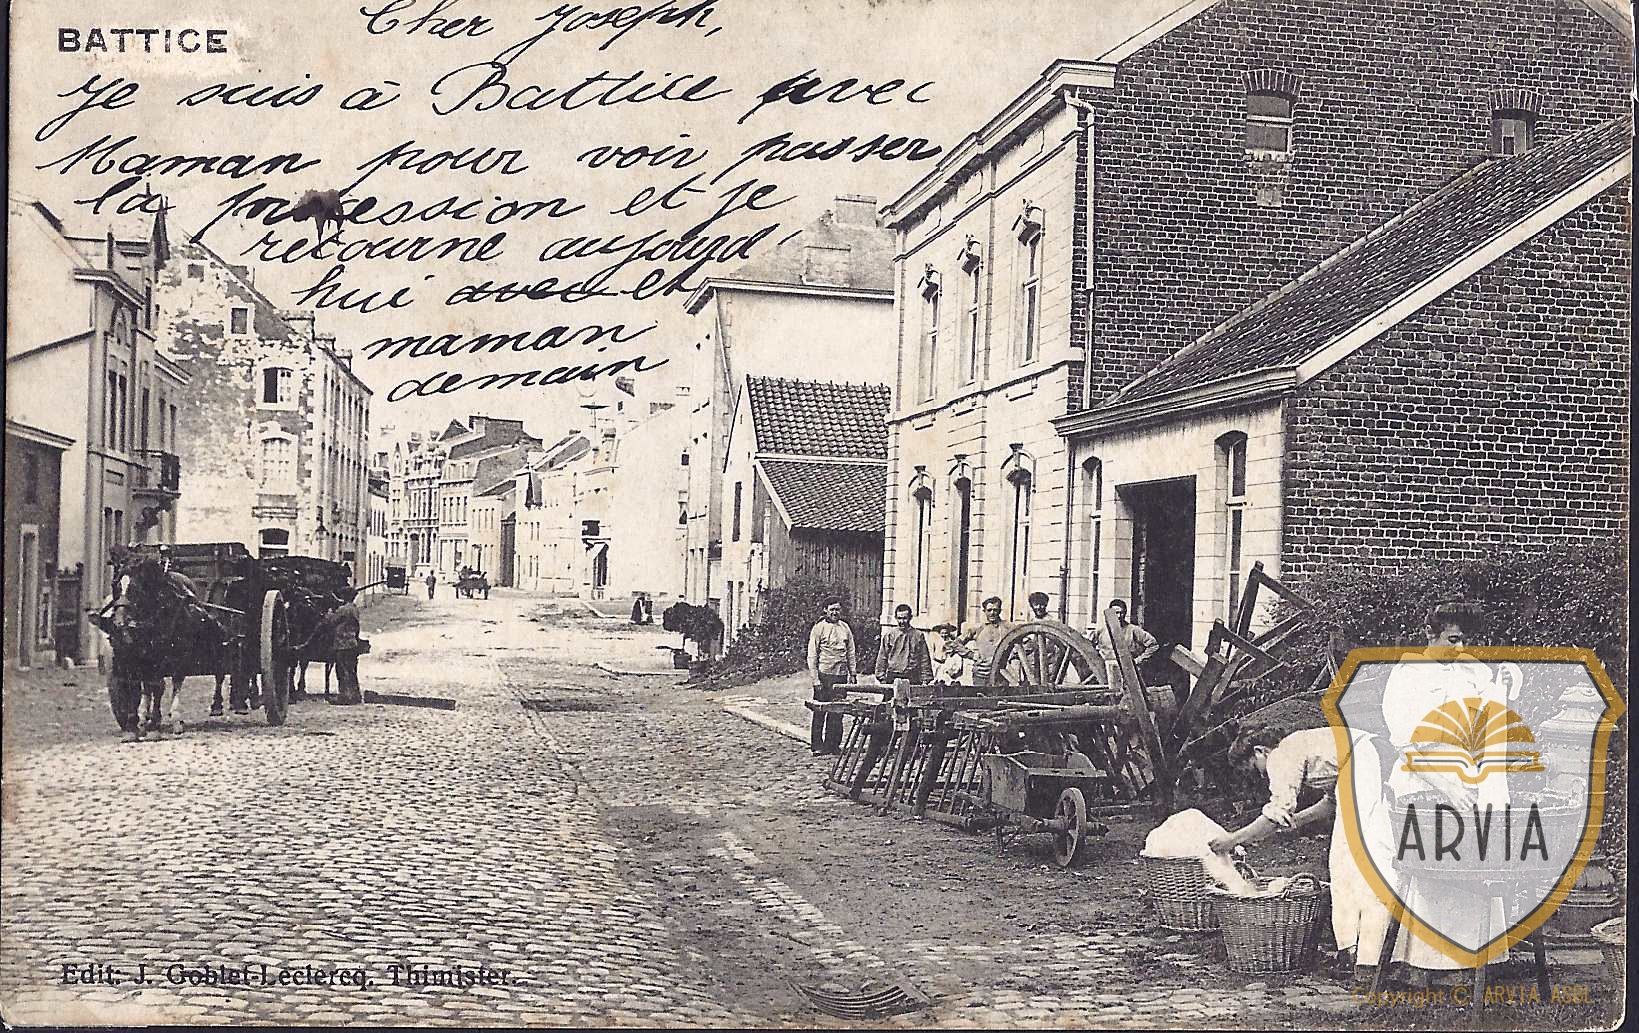 BATTICE
Cher Joseph,
Je suis à Battice avec
Maman pour voir passer
la procession et je
retourne aujourd'
hui avec et
maman
demain
Edit: J. Goblet-Leclercq. Thimister.
ARVIA
Copyright © ARVIA ASBL